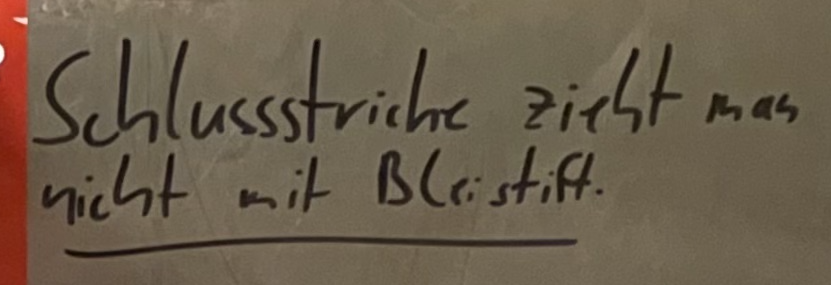 Schlussstriche zieht man
nicht mit Bleistift.